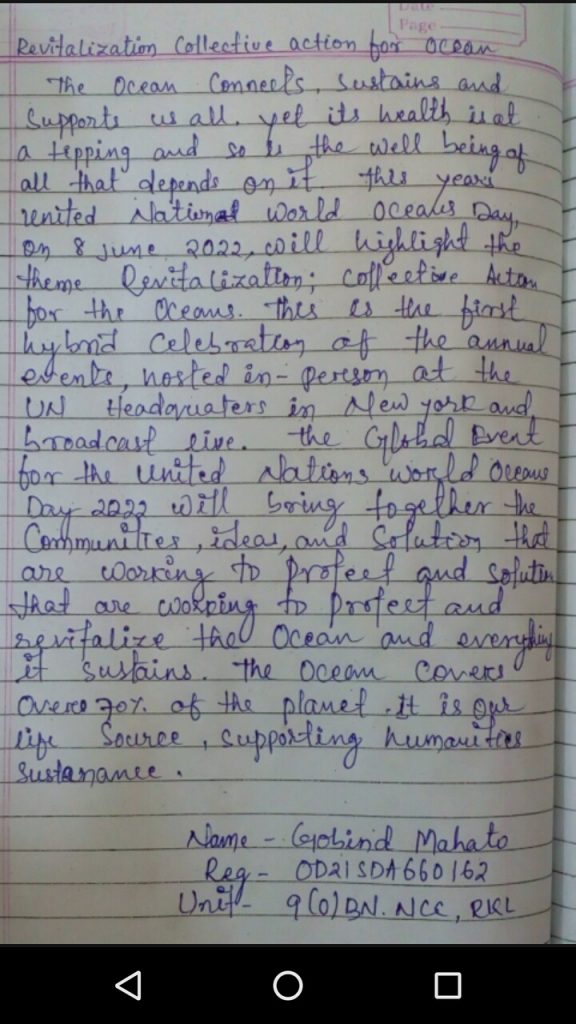 Date
Page
Revitalization Collective action for ocean
The Ocean Connects, sustains and
Supports us all. yet its health is at
a tepping and so is the well being of
all that depends on it. This years
united National World Oceans Day,
on 8 june 2022, will highlight the
theme Revitalization; Collective Action
for the Oceans. This is the first
hybrid Celebration of the annual
events, hosted in-person at the
UN Headquaters in New york and
broadcast live. the Global Event
for the United Nations world Oceans
Day 2022 will bring together the
Communities, ideas, and Solution that
are working to Protect and solution
that are working to Protect and
revitalize the Ocean and everything
it sustains. the Ocean Covers
Overs 70% of the planet. it is our
life Source, supporting humanities
Sustenance.
Name - Gobind Mahato
Reg - OD21SDA660162
Unit - 9(O)BN. NCC, RKL